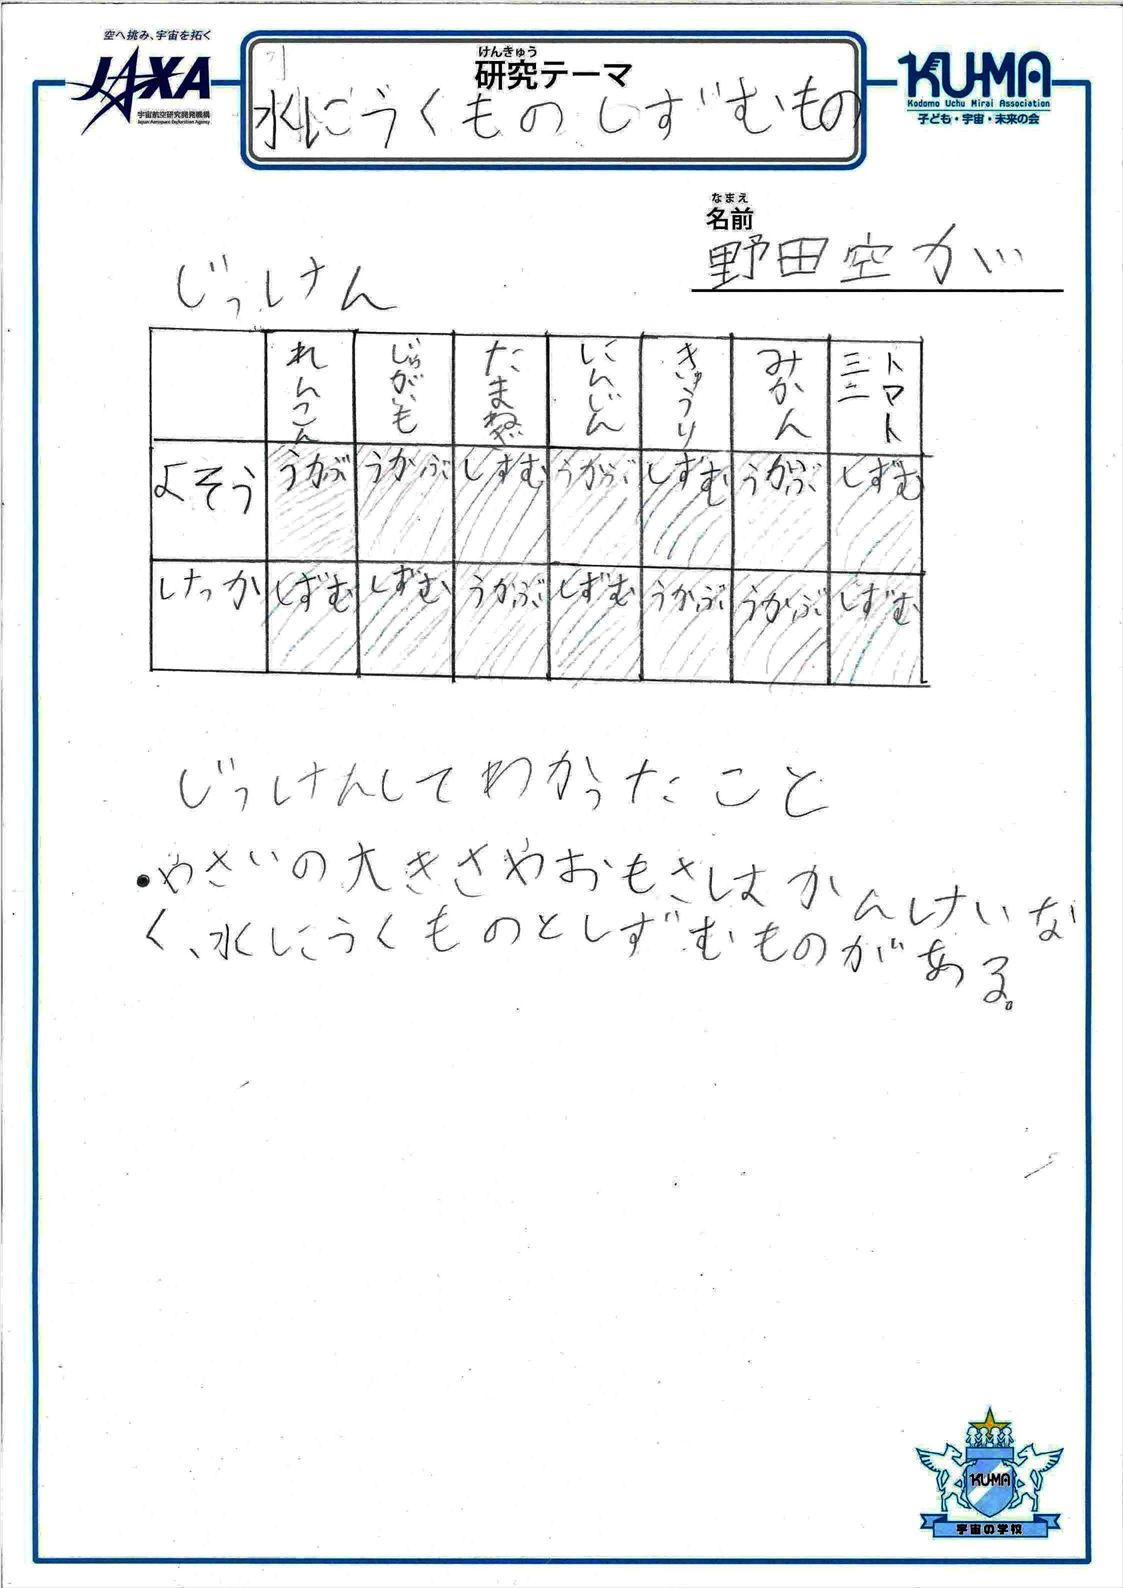 空へ挑み、宇宙を拓く
JAXA
宇宙航空研究開発機構
Japan Aerospace Exploration Agency
けんきゅう
研究テーマ
水にうくものしずむもの
KU-MA
Kodomo Uchu Mirai Association
子ども・宇宙・未来の会
なまえ
名前
野田空がい
じっけん
れんこん じゃがいも たまねぎ にんじん きゅうり みかん ミニトマト
よそう うかぶ うかぶ しずむ うかぶ しずむ うかぶ しずむ
けっか しずむ しずむ うかぶ しずむ うかぶ うかぶ しずむ
じっけんしてわかったこと
•やさいの大きさやおもさはかんけいな
く、水にうくものとしずむものがある。
KU-MA
宇宙の学校